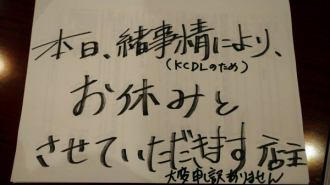 本日、緒事情により、
(KCDLのため)
お休みと
させていただきます 店主
大変申し訳ありません